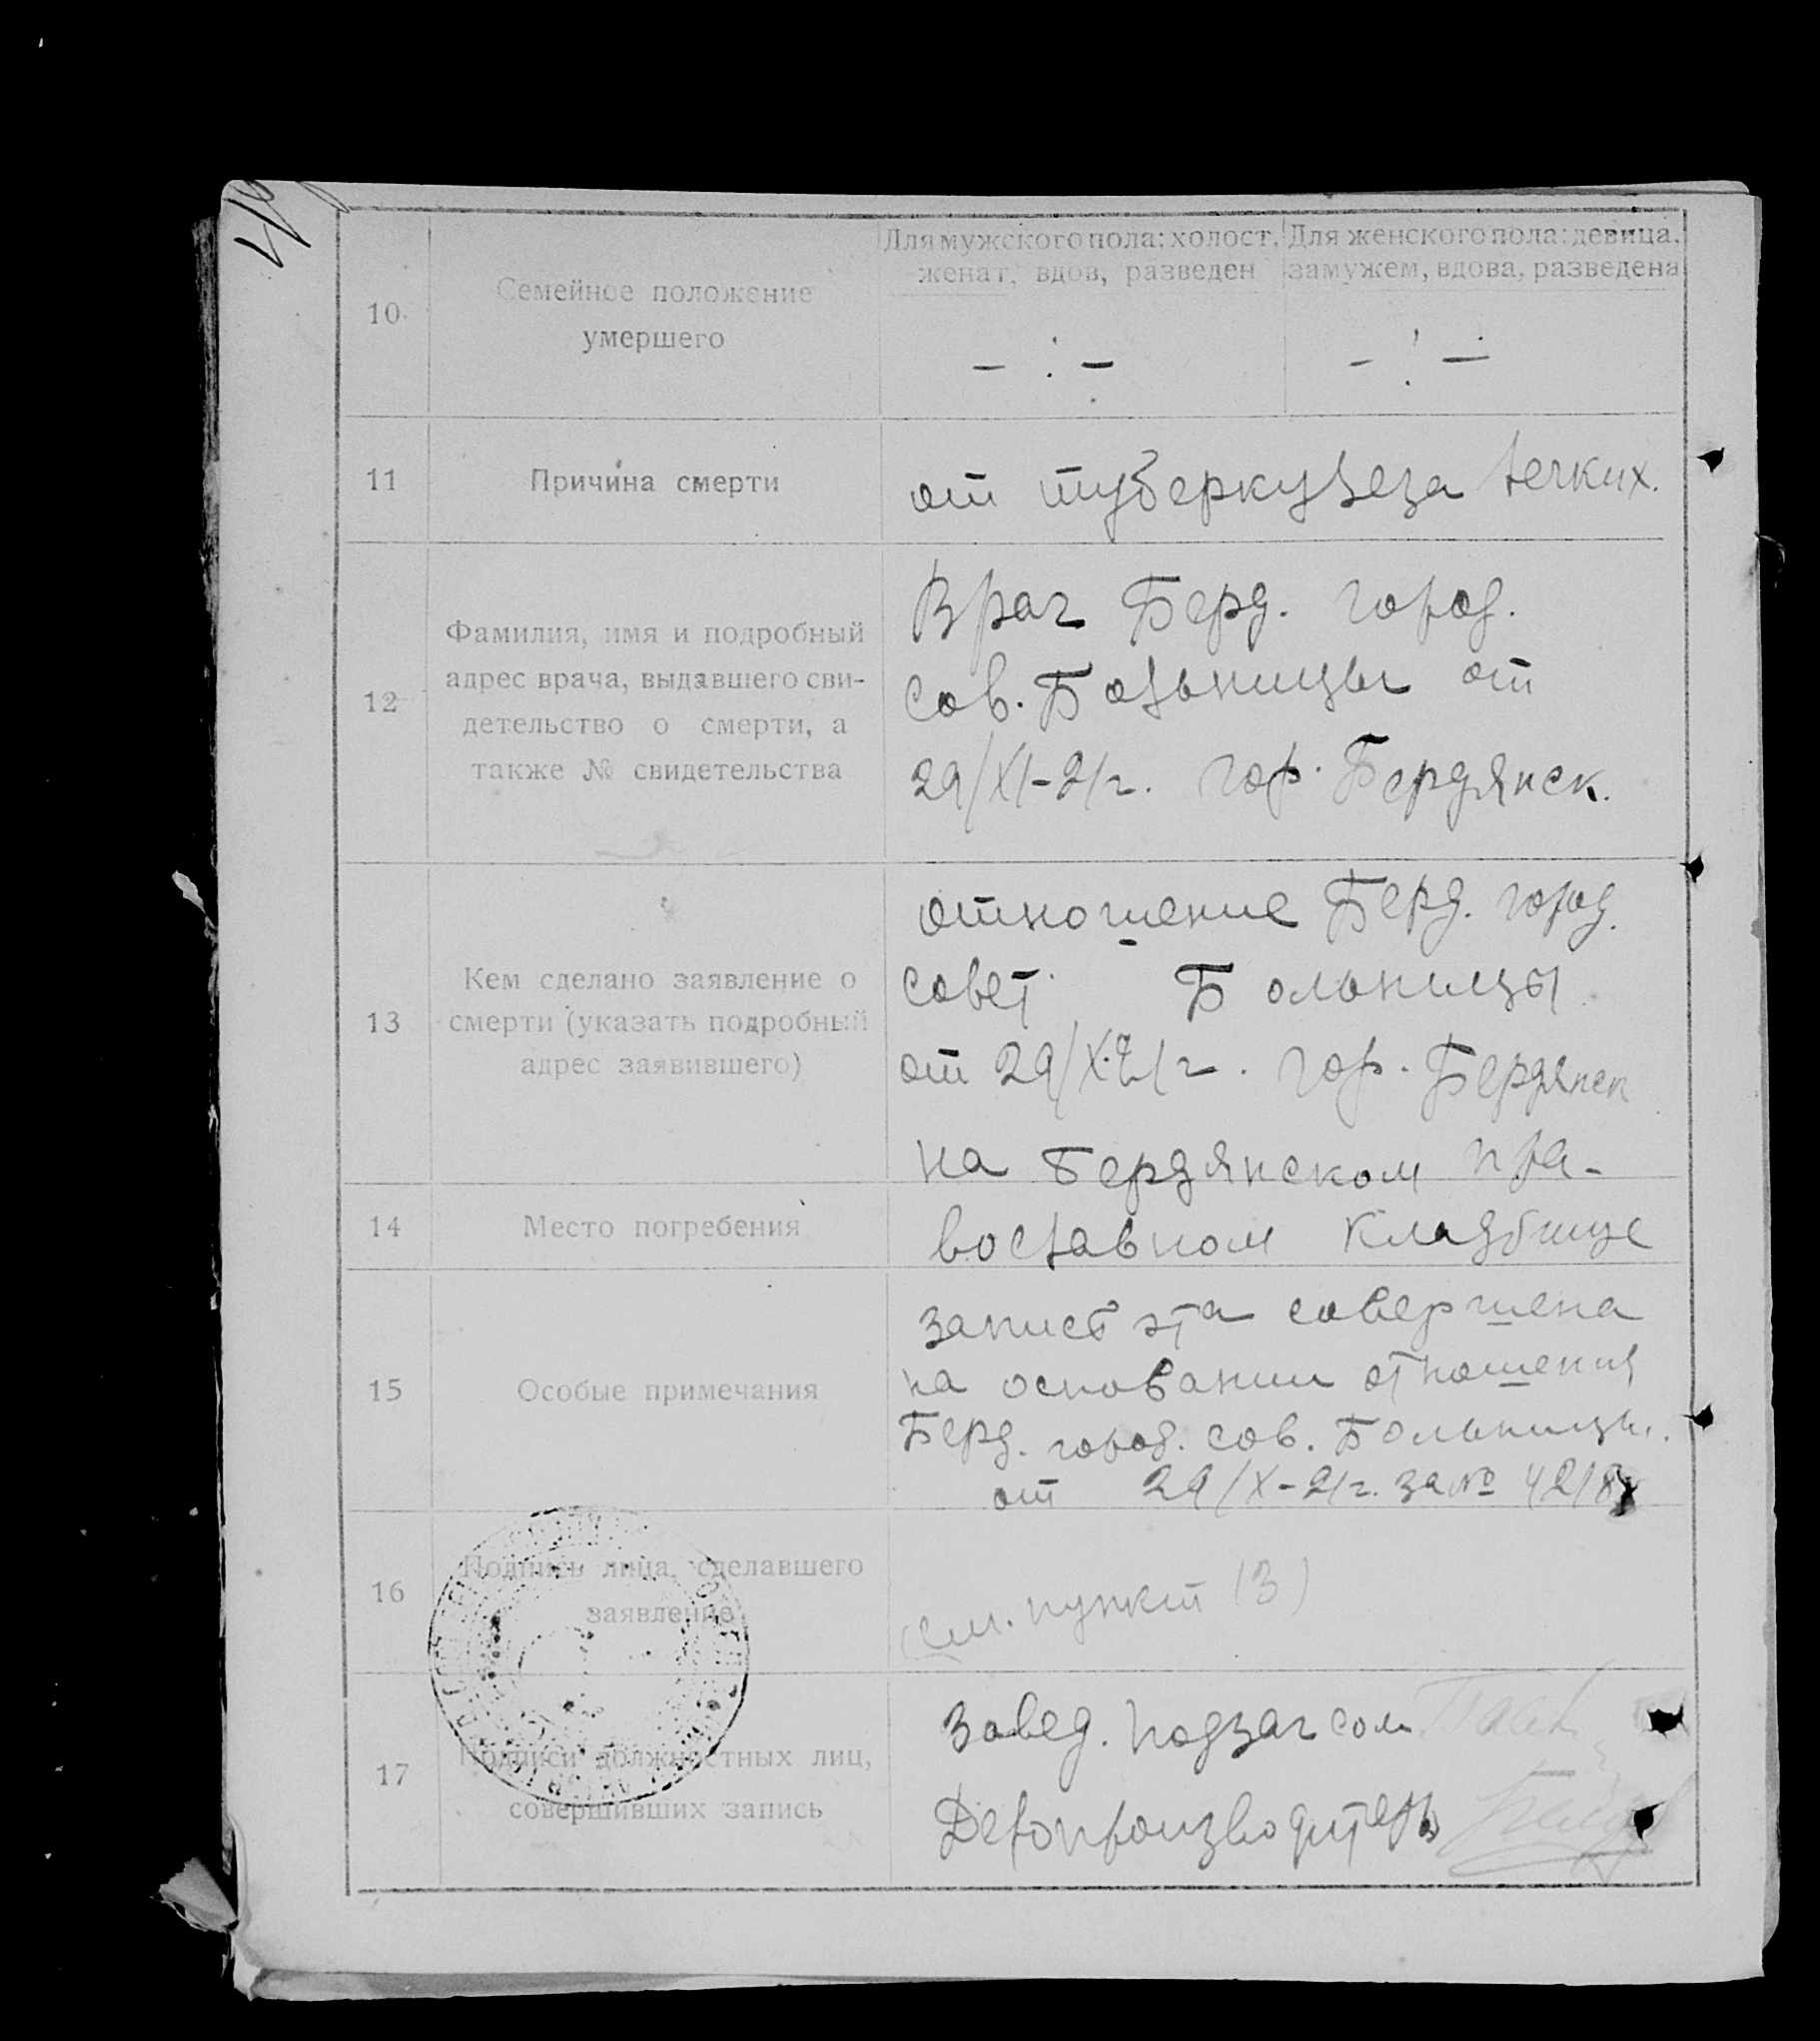 Для мужского пола: холост, женат, вдов, разведен
Для женского пола: девица, замужем, вдова, разведена
10
Семейное положение
умершего
— : —
— : —
11
Причина смерти
от туберкулеза легких.
12
Фамилия, имя и подробный
адрес врача, выдавшего сви-
детельство о смерти, а
также № свидетельства
Врач Берд. город.
Сов. Больницы от
29/XI-21г. гор. Бердянск.
13
Кем сделано заявление о
смерти (указать подробный
адрес заявившего)
отношение Берд. город.
совет. Больницы
от 29/X-21г. гор. Бердянск
14
Место погребения
на Бердянском пра-
вославном кладбище
15
Особые примечания
запись эта совершена
на основании отношения
Берд. город. сов. Больницы.
от 29/X-21г. за №
16
Подпись лица, сделавшего
заявление
(см. пункт 13)
17
Подписи должностных лиц,
совершивших запись
Завед. подзагсом
Делопроизводитель